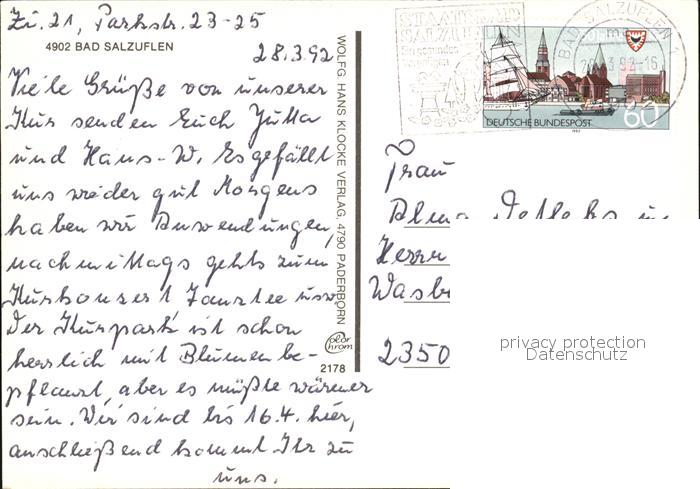 Zi. 21, Parkstr. 23-25
4902 BAD SALZUFLEN
28.3.92
Viele Grüße von unserer
Kur senden Euch Jutta
und Hans-W. Es gefällt
uns wieder gut Morgens
haben wir Anwendungen,
nachmittags gehts zum
Kurkonzert Tanztee usw.
Der Kurpark ist schon
herrlich mit Blumen be-
pflanzt, aber es müßte wärmer
sein. Wir sind bis 16.4. hier,
anschließend kommt Ihr zu
uns.
WOLFG. HANS KLOCKE VERLAG, 4790 PADERBORN
color chrom
2178
STAATSBAD
SALZUFLEN
BAD SALZUFLEN 1
DEUTSCHE BUNDESPOST
60
1992
Frau
Alma
Herrn
2350
privacy protection
Datenschutz